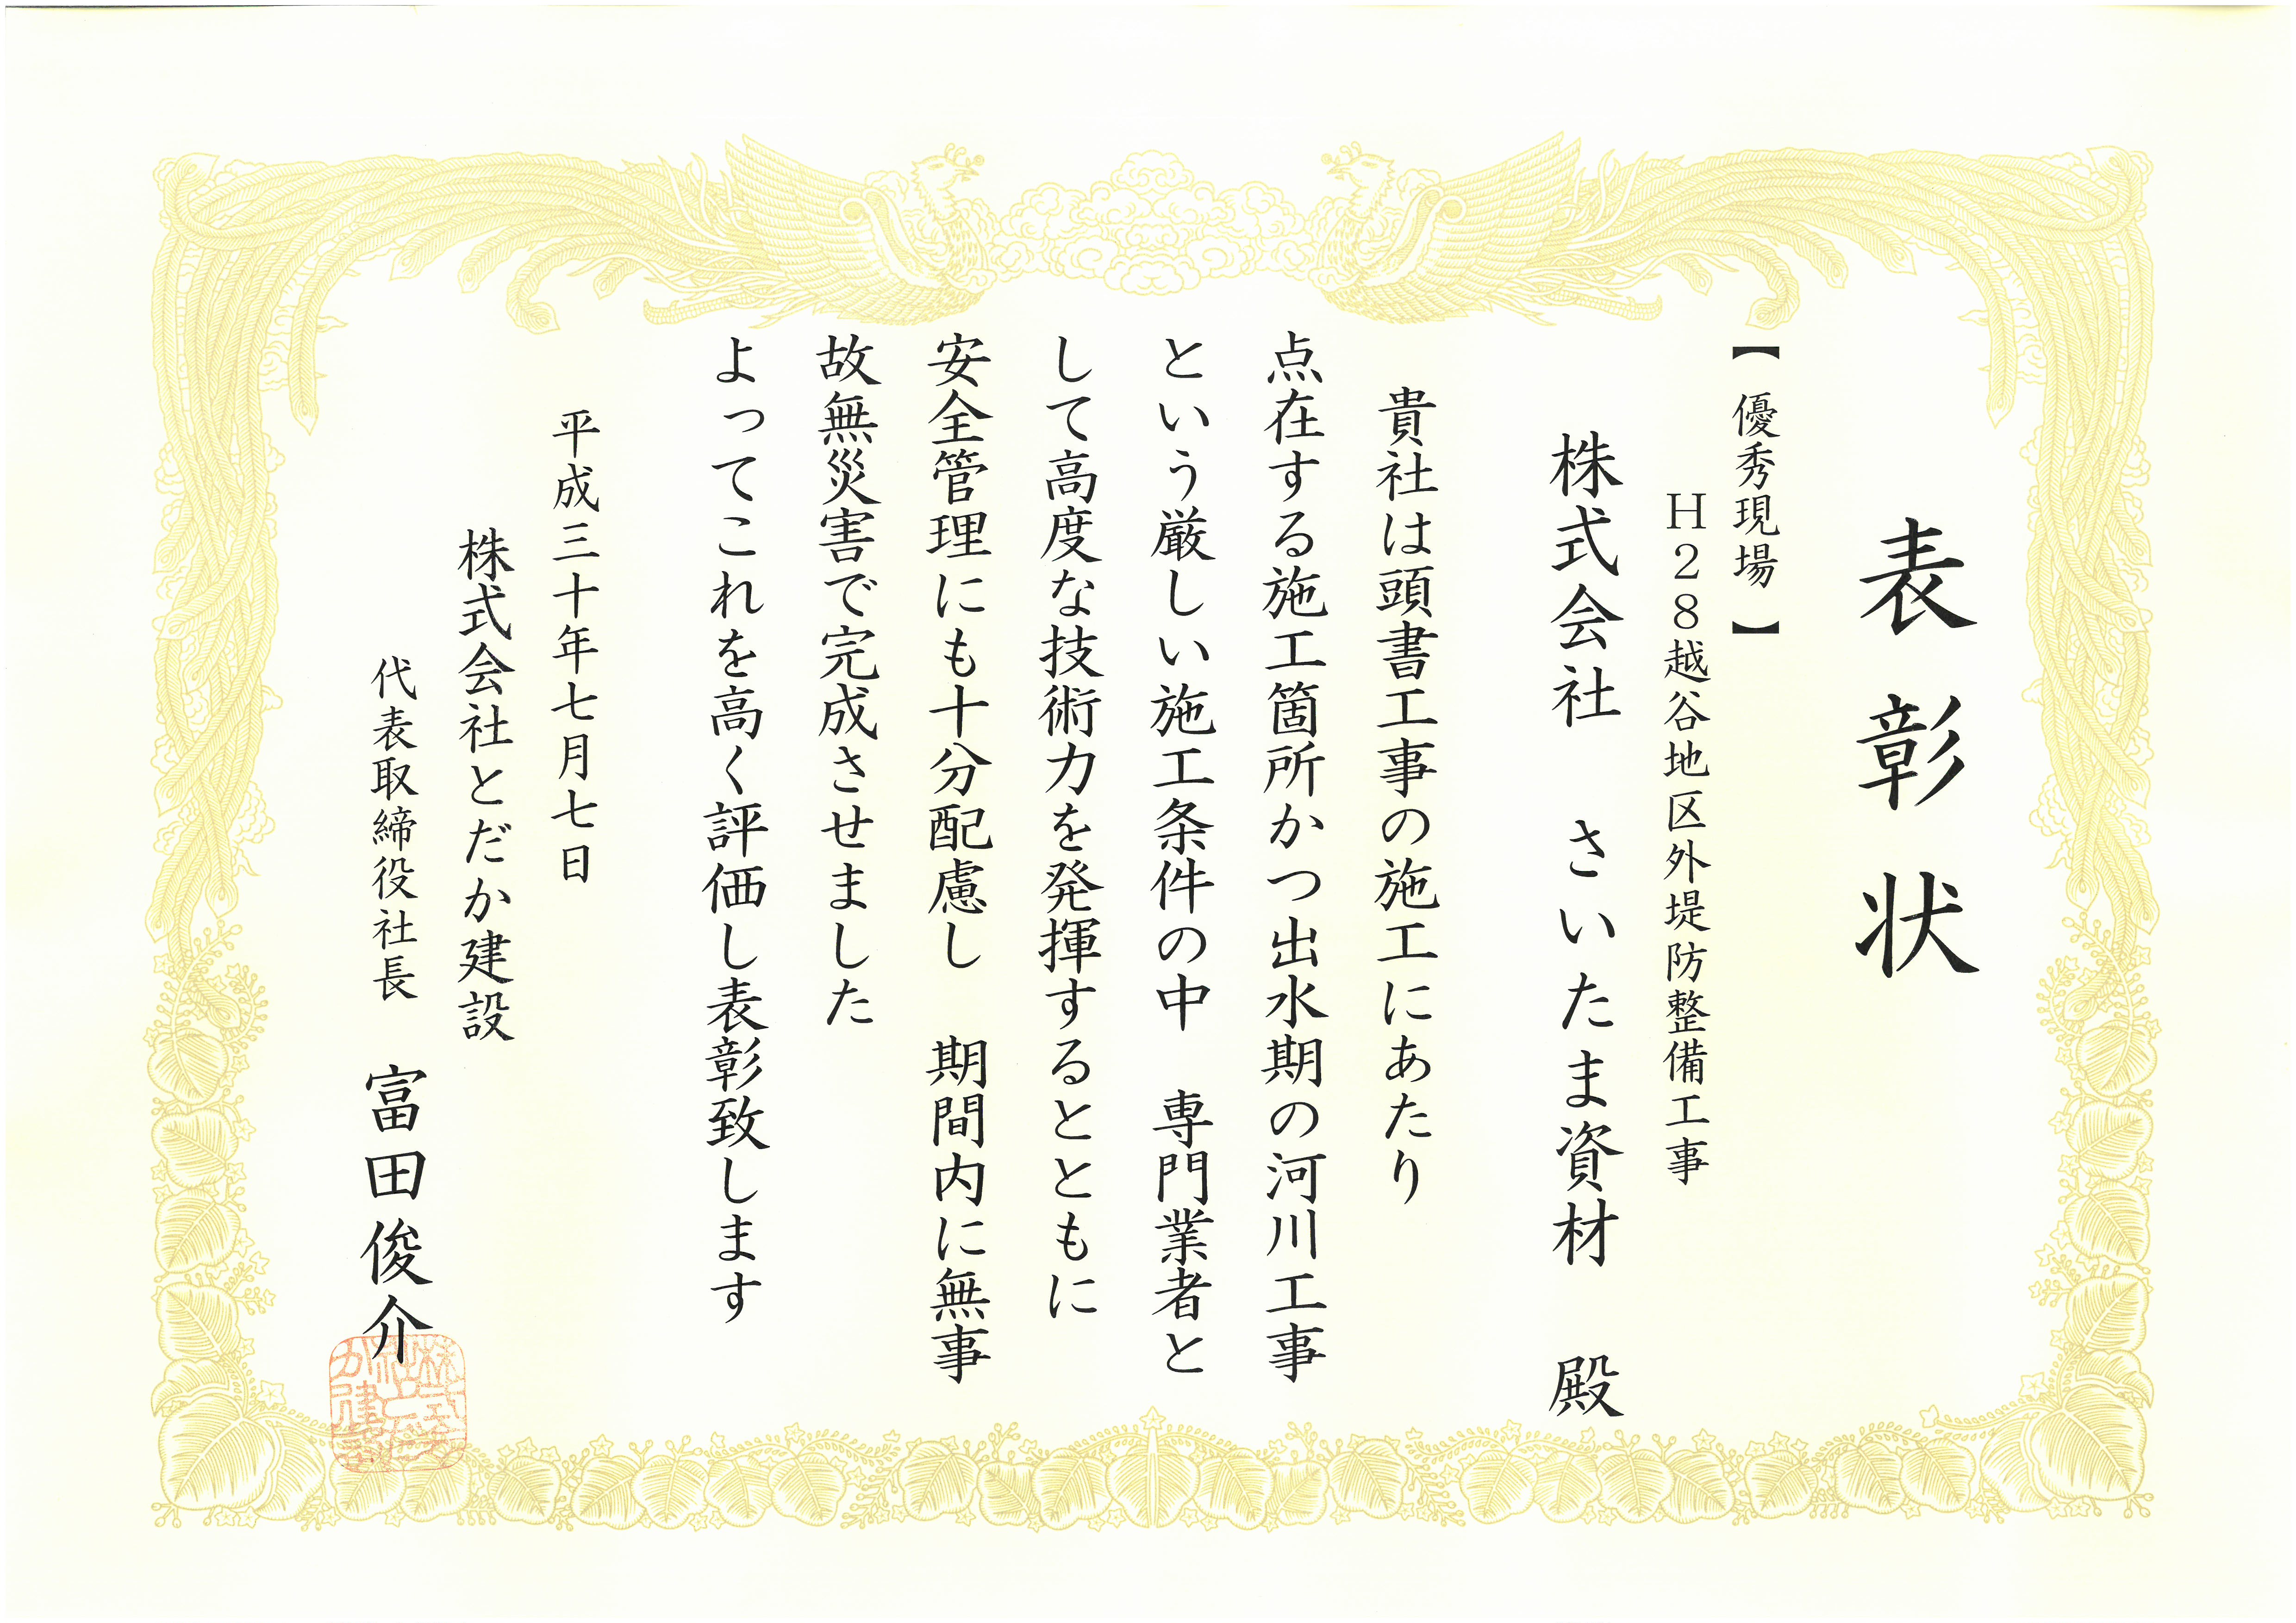 表彰状
【優秀現場】
H28越谷地区外堤防整備工事
株式会社 さいたま資材 殿
貴社は頭書工事の施工にあたり
点在する施工箇所かつ出水期の河川工事
という厳しい施工条件の中 専門業者と
して高度な技術力を発揮するとともに
安全管理にも十分配慮し 期間内に無事
故無災害で完成させました
よってこれを高く評価し表彰致します
平成三十年七月七日
株式会社とだか建設
代表取締役社長 富田俊介
株式会
社とだ
か建設